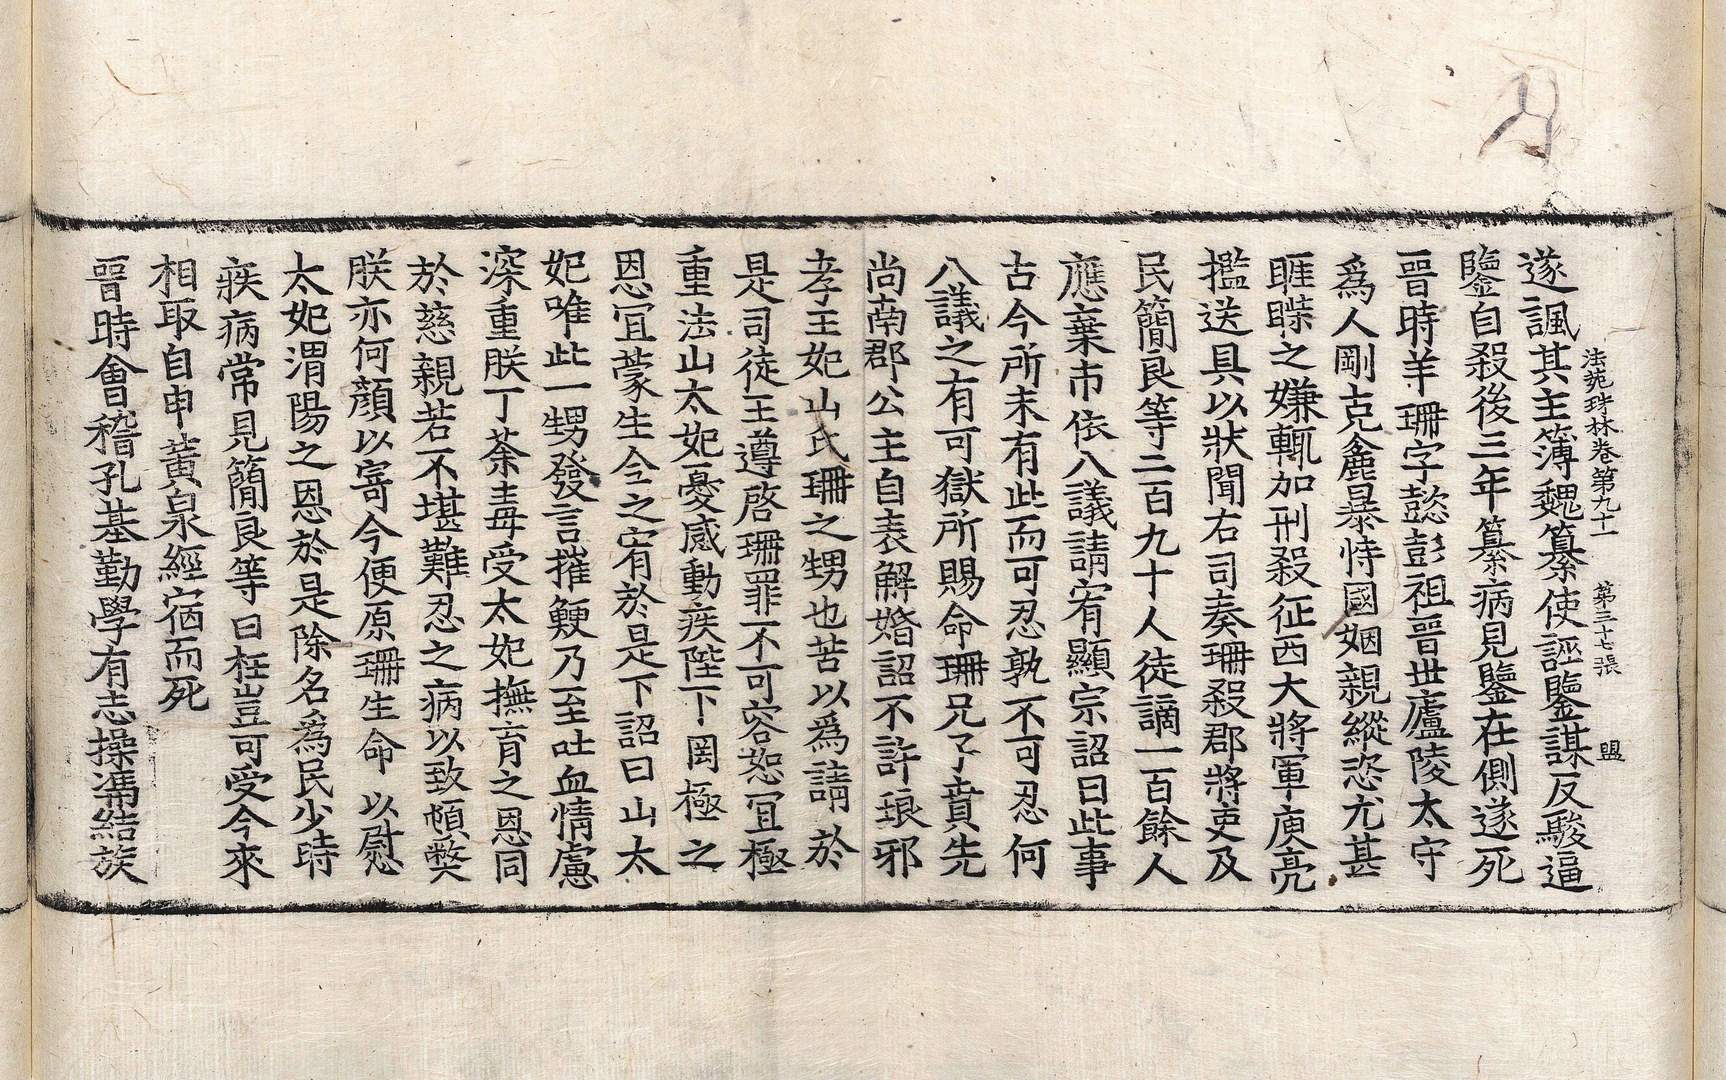 法苑珠林卷第九十一 第三十七張 盟
遂諷其主簿魏纂使誣鑒謀反駿逼
鑒自殺後三年纂病見鑒在側遂死
晉時羊珊字懿彭祖晉世廬陵太守
爲人剛克麁暴恃國姻親縱恣尤甚
睚𥊽之嫌輒加刑殺征西大將軍庾亮
檻送具以狀聞右司奏珊殺郡將吏及
民簡良等二百九十人徒謫一百餘人
應棄市依八議請宥顯宗詔曰此事
古今所未有此而可忍孰不可忍何
八議之有可獄所賜命珊兄子賁先
尚南郡公主自表解婚詔不許琅邪
孝王妃山氏珊之甥也苦以爲請於
是司徒王導啓珊罪不可容恕宜極
重法山太妃憂慼動疾陛下罔極之
恩宜蒙生全之宥於是下詔曰山太
妃唯此一甥發言摧鯁乃至吐血情慮
深重朕丁荼毒受太妃撫育之恩同
於慈親若不堪難忍之病以致頓弊
朕亦何顔以寄今便原珊生命以慰
太妃渭陽之恩於是除名爲民少時
疾病常見簡良等曰枉豈可受今來
相取自申黃泉經宿而死
晉時會稽孔基勤學有志操馮結族